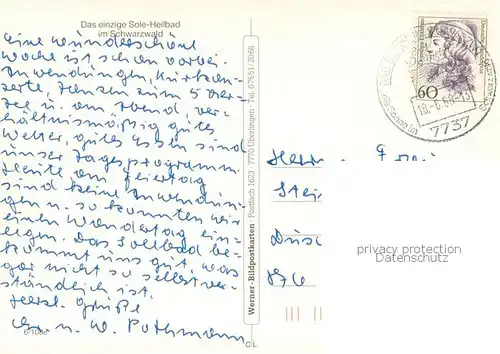 Das einzige Sole-Heilbad
im Schwarzwald
Eine wunderschöne
Woche ist schon vorbei.
Anwendungen, Kurkon-
zerte, Tanzen zum 5 Uhr
Tee u. am Abend, ver-
hältnismäßig gutes
Wetter, gutes Essen sind
unser Tagesprogramm.
Heute am Feiertag
sind keine Anwendun-
gen u. so konnten wir
einen Wandertag ein-
legen. Das Solbad be-
kommt uns gut, was
gar nicht so selbstver-
ständlich ist.
Herzl. Grüße
u. W. Pothmann
Werner-Bildpostkarten Postfach 1623 7770 Überlingen Tel. 07551/2066
C L
60
7737
Herrn
privacy protection
Datenschutz